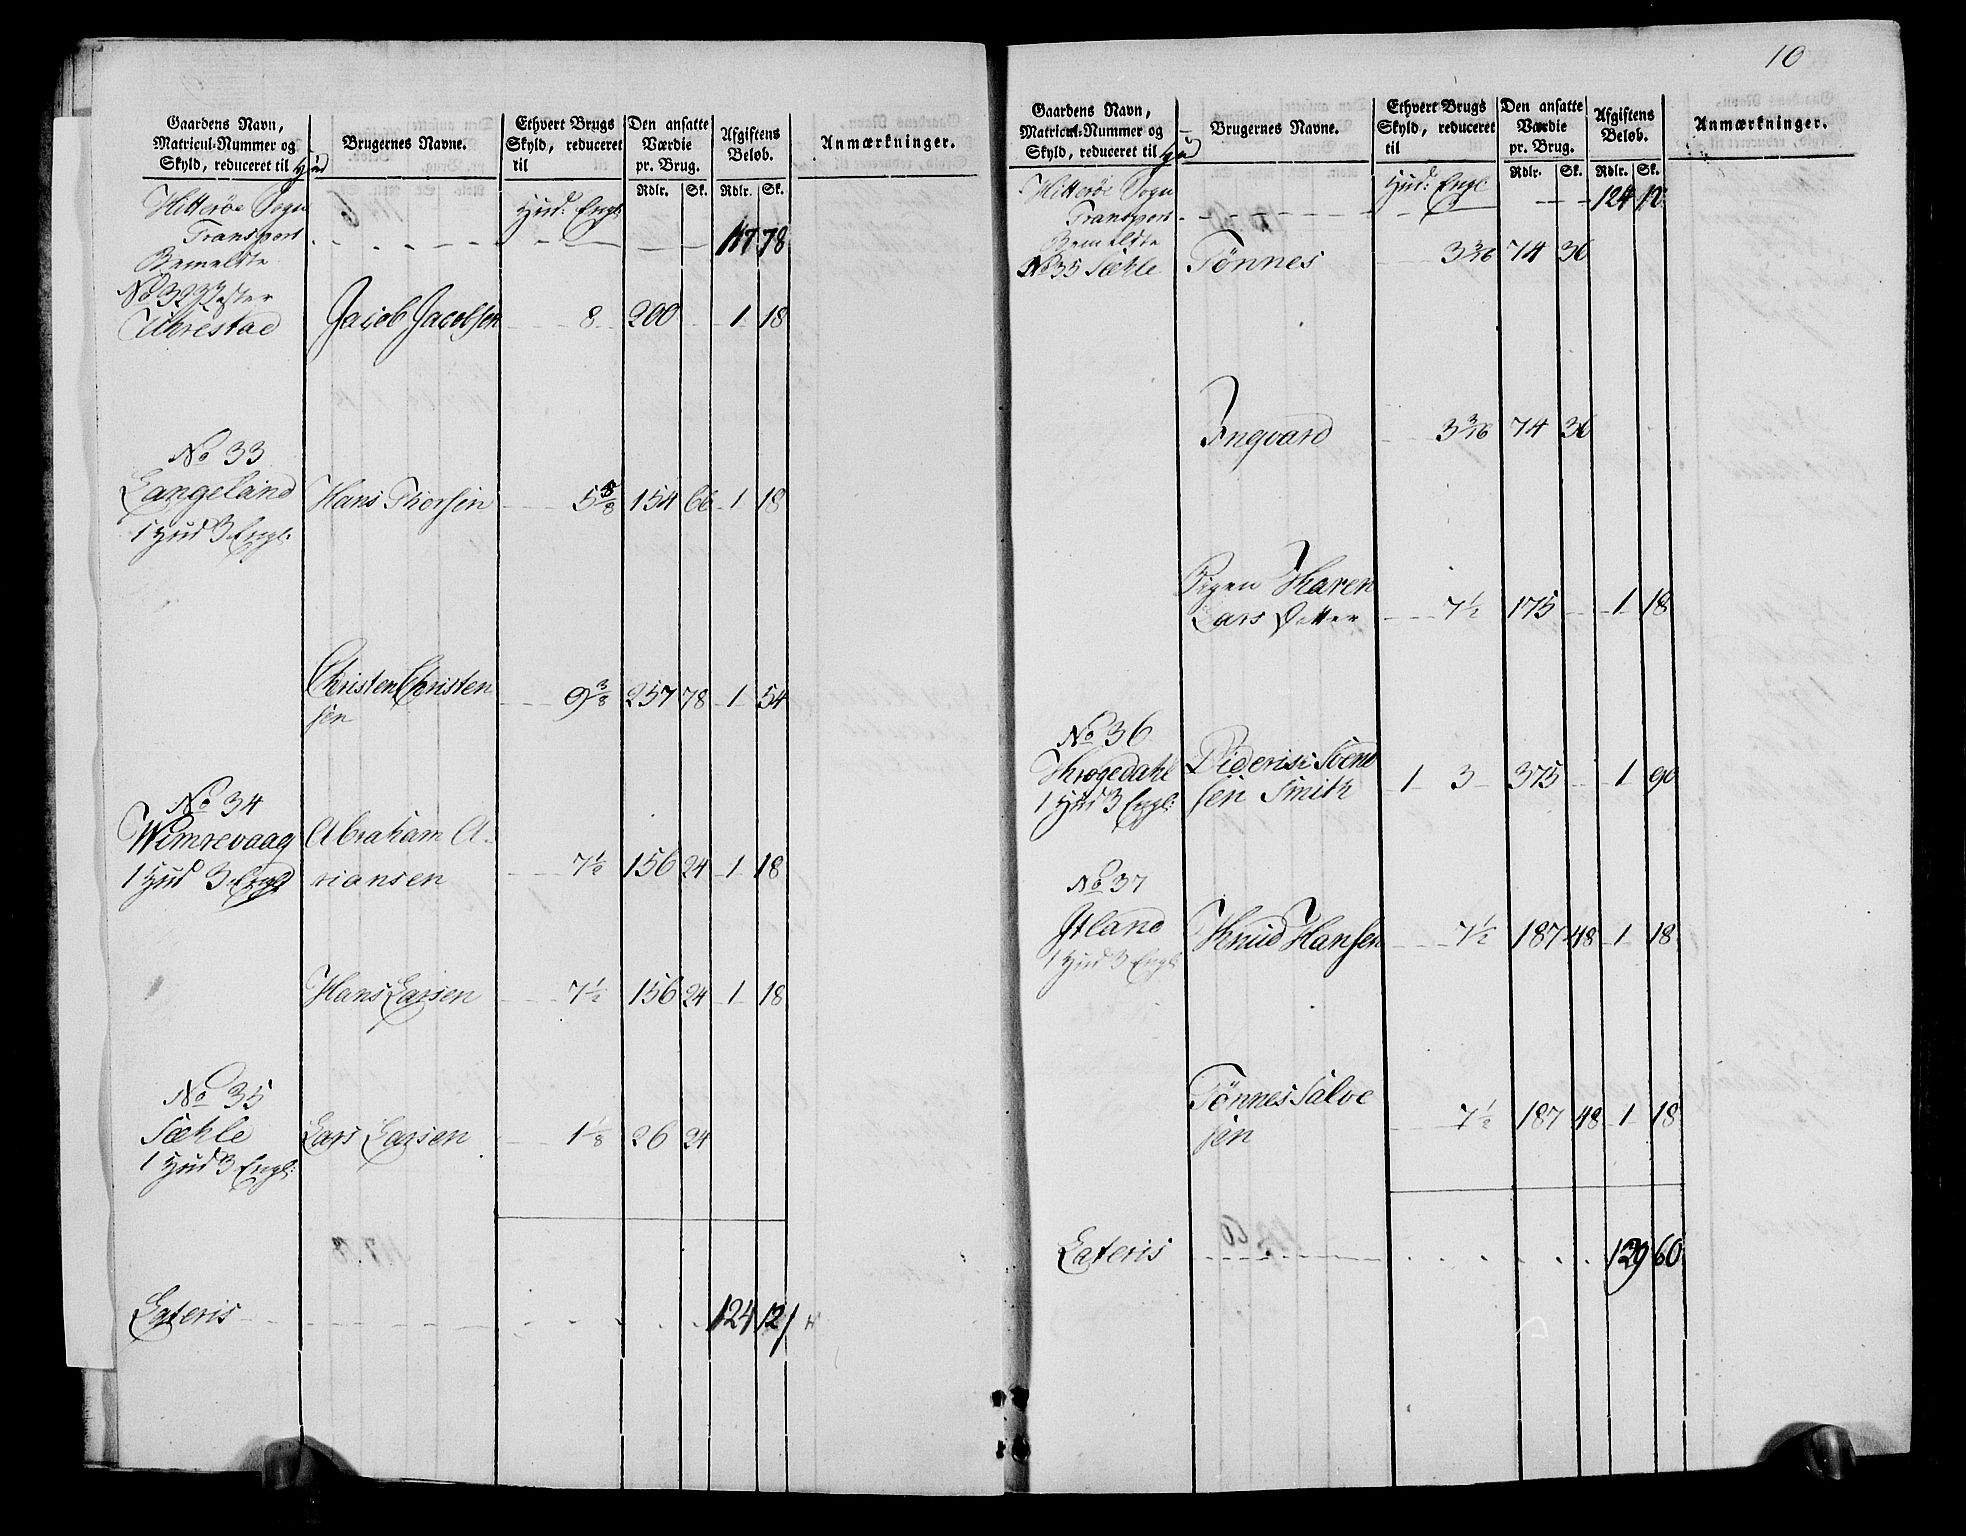 Gaardens Navn, Matricul-Nummer og Skyld, reduceret til Hud
Brugernes Navne.
Ethvert Brugs Skyld, reduceret til
Den ansatte Værdie pr. Brug.
Afgiftens Beløb.
Anmærkninger.
Rdlr. Sk. Rdlr. Sk.
Hitterøe Sogn Hud: Engl:
Transport 117 78
Bemeldte
No 32 Vester
Uhrestad Jacob Jacobsen 8 200 1 18
No 33
Langeland Hans Thorsen 5 5/8 154 66 1 18
1 Hud 3 Engl:
Christen Christen
sen 9 3/8 257 78 1 54
No 34
Wimrevaag Abraham A-
1 Hud 3 Engl riansen 7 1/2 156 24 1 18
Hans Larsen 7 1/2 156 24 1 18
No 35
Sæhle Lars Larsen 1 1/8 26 24
1 Hud 3 Engl:
Lateris 124 12
10
Gaardens Navn, Matricul-Nummer og Skyld, reduceret til Hud
Brugernes Navne.
Ethvert Brugs Skyld, reduceret til
Den ansatte Værdie pr. Brug.
Afgiftens Beløb.
Anmærkninger.
Rdlr. Sk. Rdlr. Sk.
Hitterøe Sogn Hud: Engl
Transport 124 12
Bemeldte
No 35 Sæhle Tønnes 3 3/16 74 36
Ingvard 3 3/16 74 36
Pigen Karen
Lars Datter 7 1/2 175 1 18
No 36
Krogedahl Diderik Svend
1 Hud 3 Engl: sen Smith 1 3 375 1 90
No 37
Ytland Knud Hansen 7 1/2 187 48 1 18
1 Hud 3 Engl
Tønnes Salve
sen 7 1/2 187 48 1 18
Lateris 129 60